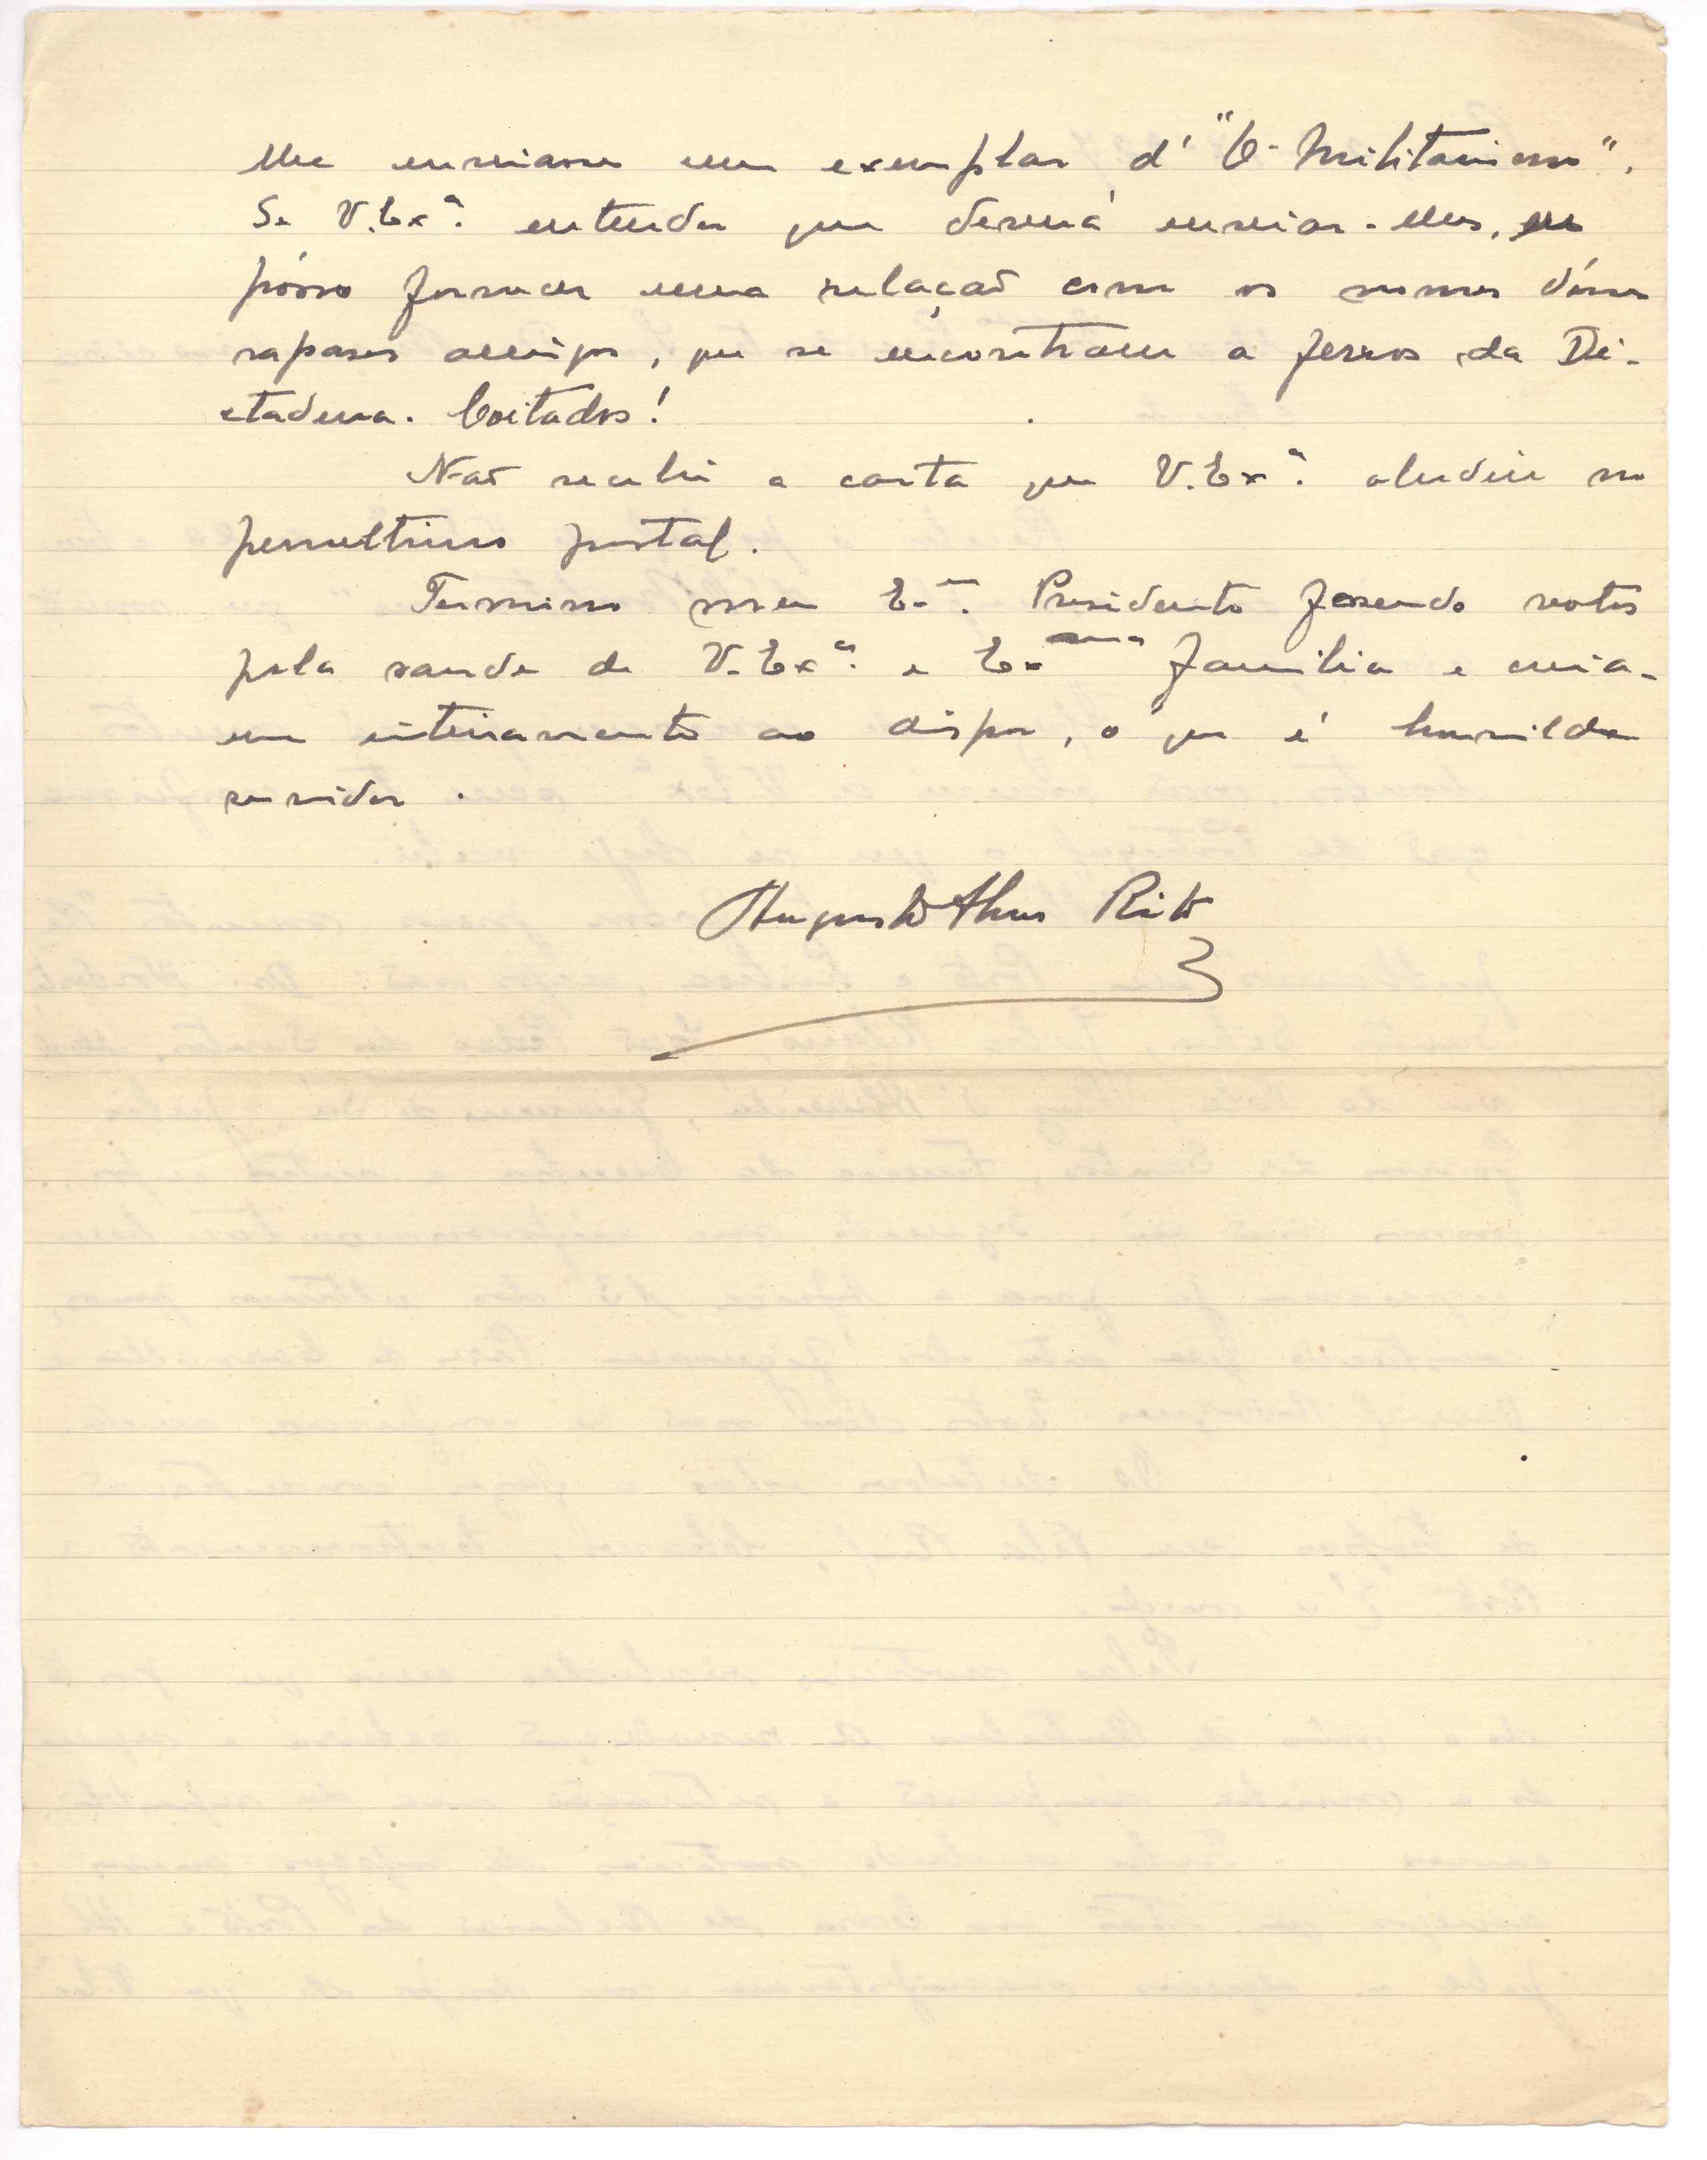 lhe enviasse um exemplar d' "O Militarismo".
Se V. Exª. entender que deverá enviar-lhes, eu
pósso fornecer uma relaçaõ com os nomes dêsses
rapases amigos, que se encontram a ferros da Di-
ctadura. Coitados!
Naõ recebi a carta que V. Exª. aludiu no
penultimo postal.
Termino meu E.mo. Presidente fasendo votos
pela saude de V. Exª. e Exma familia e creia-
me inteiramente ao dispor, o que é humilde
servidor.
Augusto Rito